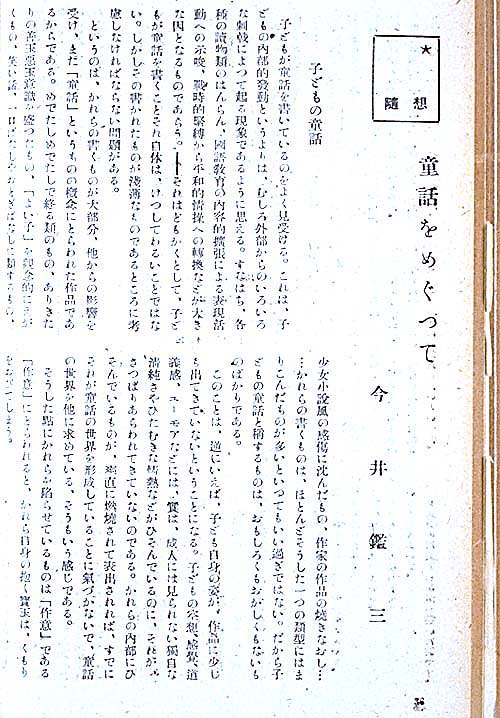 ★
随想
童話をめぐつて
今井鑑三
子どもの童話
子どもが童話を書いているのをよく見受ける。これは、子
どもの内部的発動というよりは、むしろ外部からのいろいろ
な刺戟によつて起る現象であるように思える。すなはち、各
種の読物類のはんらん、国語教育の内容的拡張による表現活
動への示唆、戦時的緊縛から平和的情操への転換などが大き
な因となるものであらう。――それはともかくとして、子ど
もが童話を書くことそれ自体は、けつしてわるいことではな
い。しかしその書かれたものが浅薄なものであるところに考
慮しなければならない問題がある。
というのは、かれらの書くものが大部分、他からの影響を
受け、また「童話」というものの概念にとらわれた作品であ
るからである。めでたしめでたしで終る類のもの、ありきた
りの善玉悪玉意識を盛つたもの、「よい子」を観念的に
くもの、笑い話、
少女小説風の感傷に沈んだもの、作家の作品の焼きなおし…
…かれらの書くものは、ほとんどそうした一つの類型にはま
りこんだものが多いといつてもいい過ぎではない。だから子
どもの童話と称するものは、おもしろくもおかしくもないも
のばかりである。
このことは、逆にいえば、子ども自身の姿が、作品に少し
も出てきていないということになる。子どもの空想、感覚、道
義感、ユーモアなどには、実は、成人には見られない独自な
清純さやひたむきな情熱などがひそんでいるのに、それが
さつぱりあらわれてきていないのである。かれらの内部にひ
そんでいるものが、率直に燃焼されて表出されれば、すでに
それが童話の世界を形成していることに気づかないで、童話
の世界を他に求めている、そういう感じである。
そうした点にかれらを陥らせているものは「作意」である
「作意」にとらわれると、かれら自身の抱く宝玉は、くもり